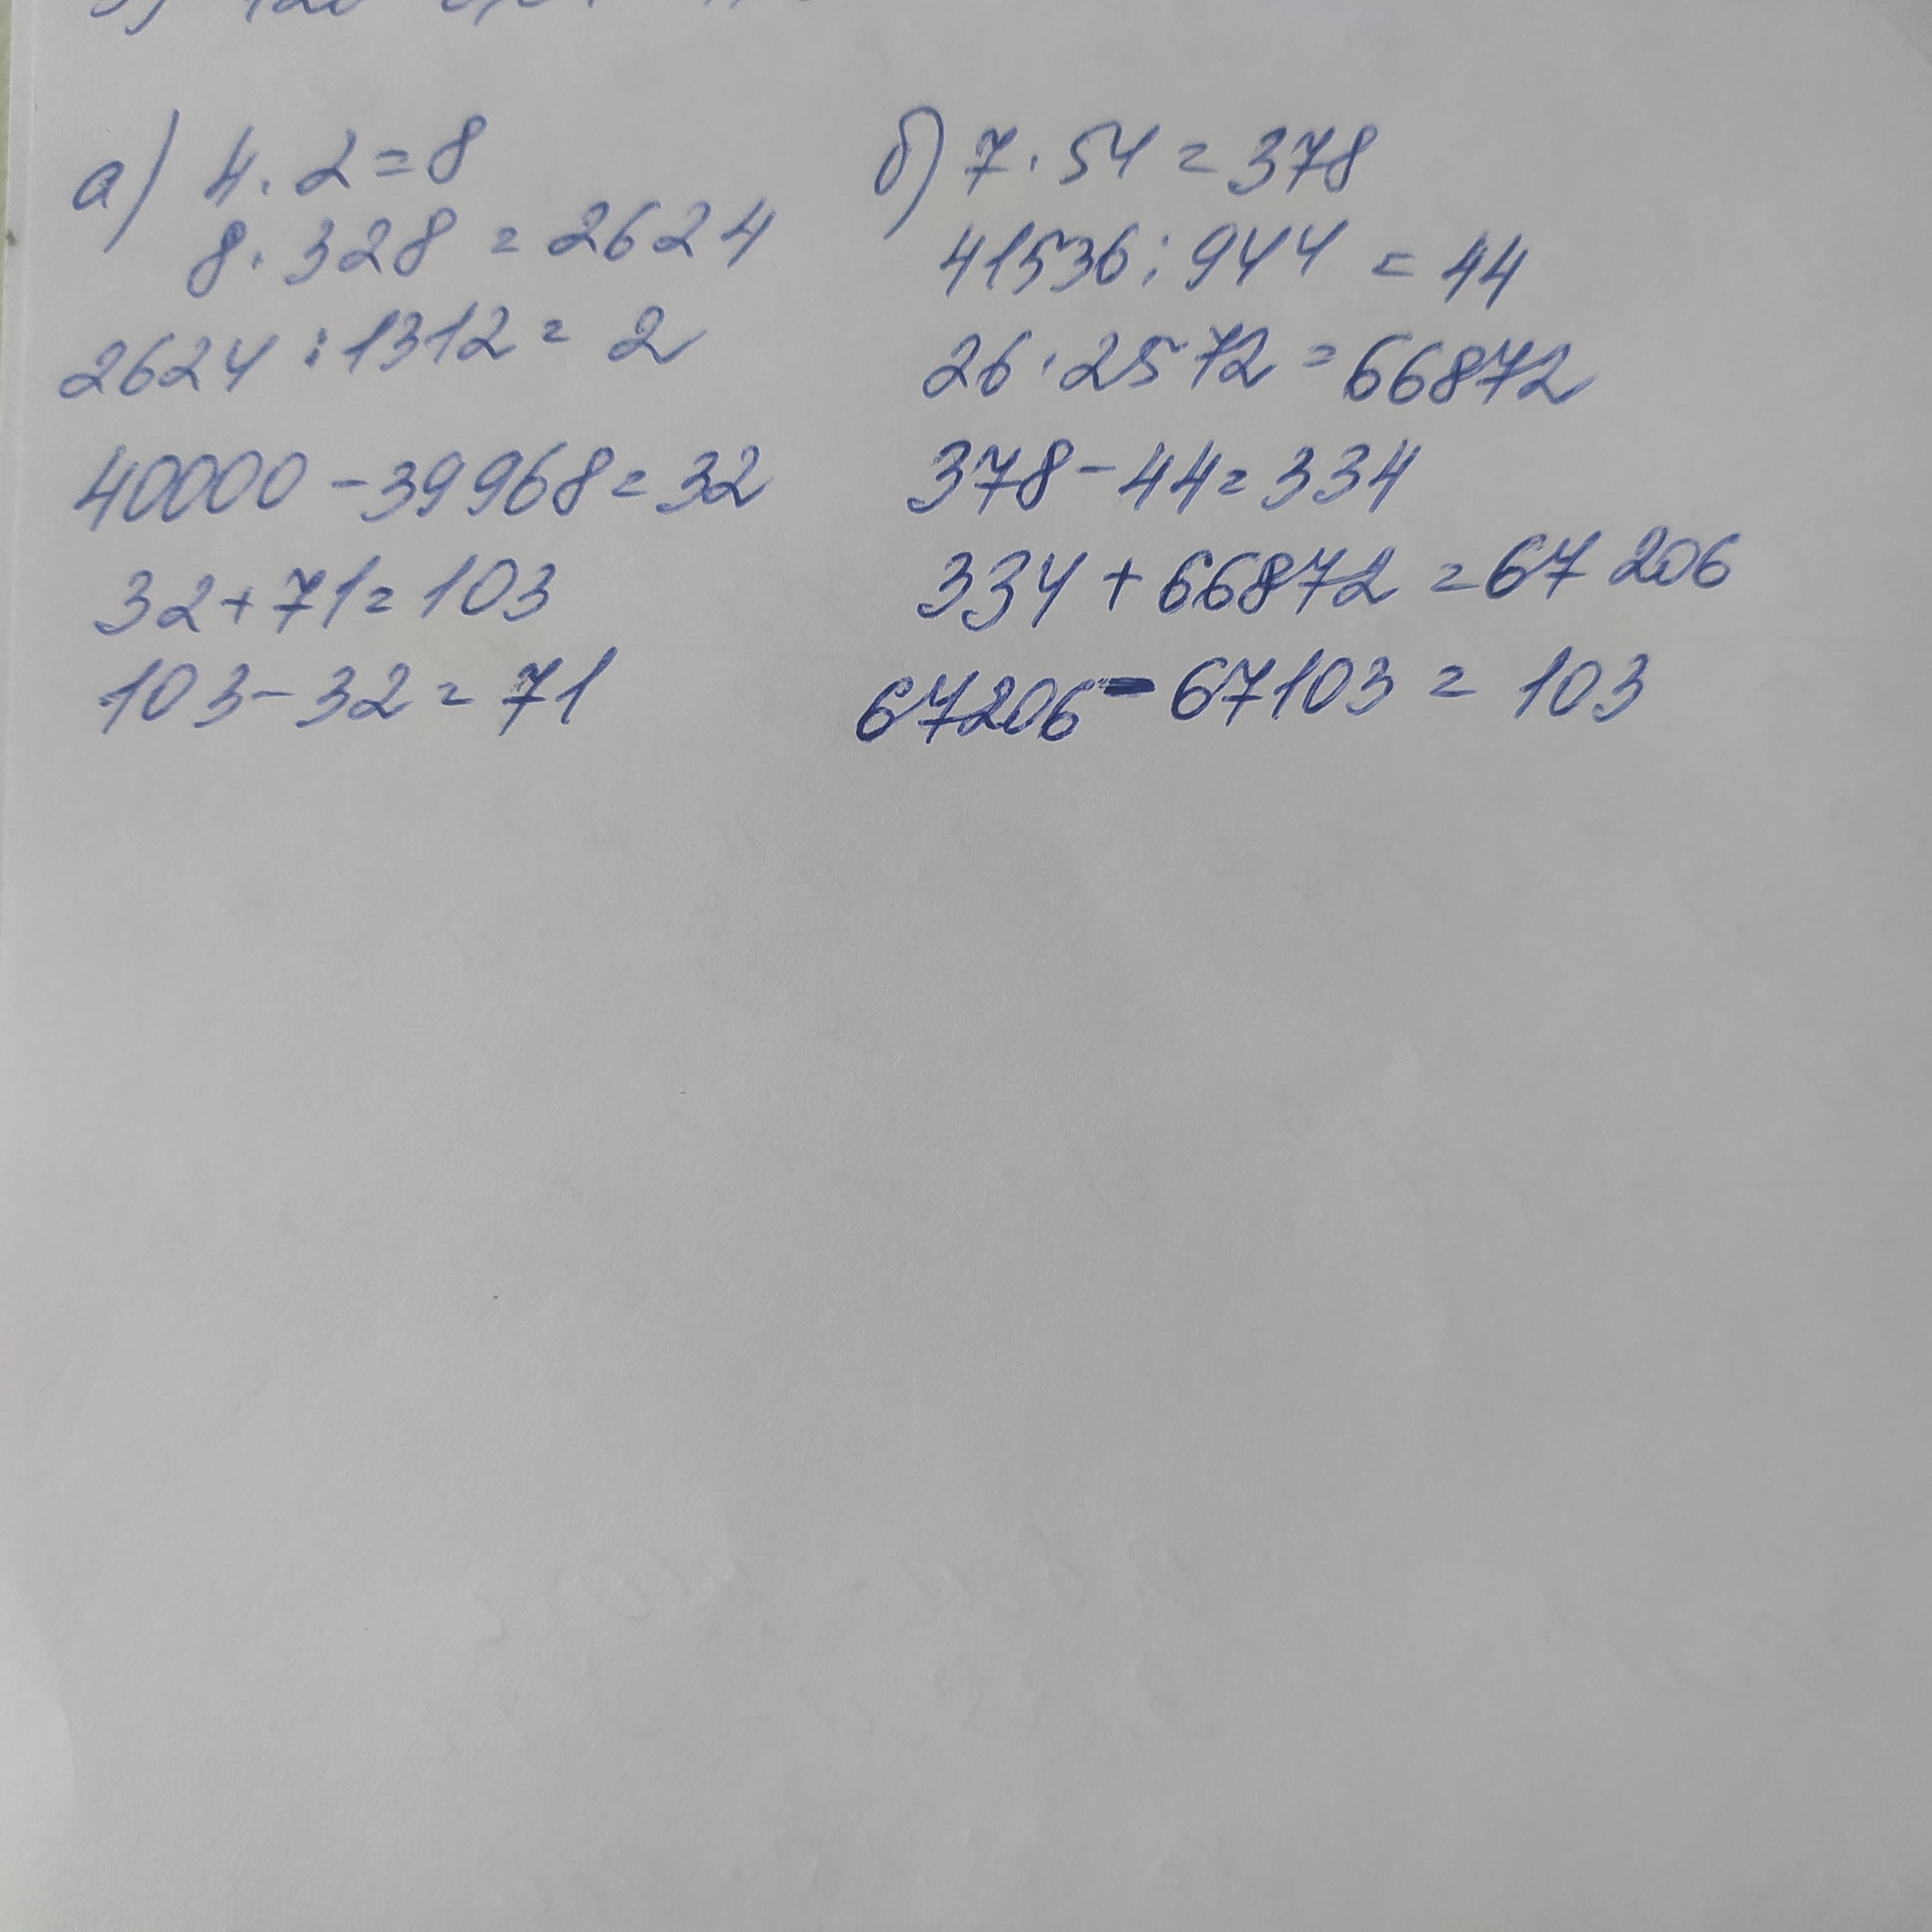 а) 4 · 2 = 8
8 · 328 = 2624
2624 : 1312 = 2
40000 - 39968 = 32
32 + 71 = 103
103 - 32 = 71
б) 7 · 54 = 378
41536 : 944 = 44
26 · 2572 = 66872
378 - 44 = 334
334 + 66872 = 67 206
67206 - 67103 = 103